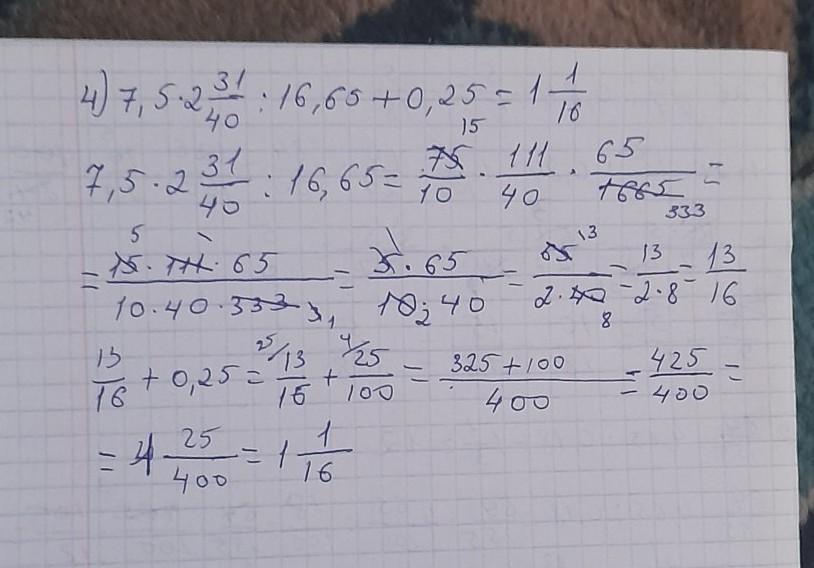 4) 7,5·2 31/40 : 16,65 + 0,25 = 1 1/16
7,5·2 31/40 : 16,65 = 75/10 · 111/40 · 65/1665 = 15 333
= 15·111·65/10·40·333 = 5·65/10·40 = 65/2·40 = 13/2·8 = 13/16
13/16 + 0,25 = 25/13/16 + 4/25/100 = 325+100/400 = 425/400 =
= 1 25/400 = 1 1/16